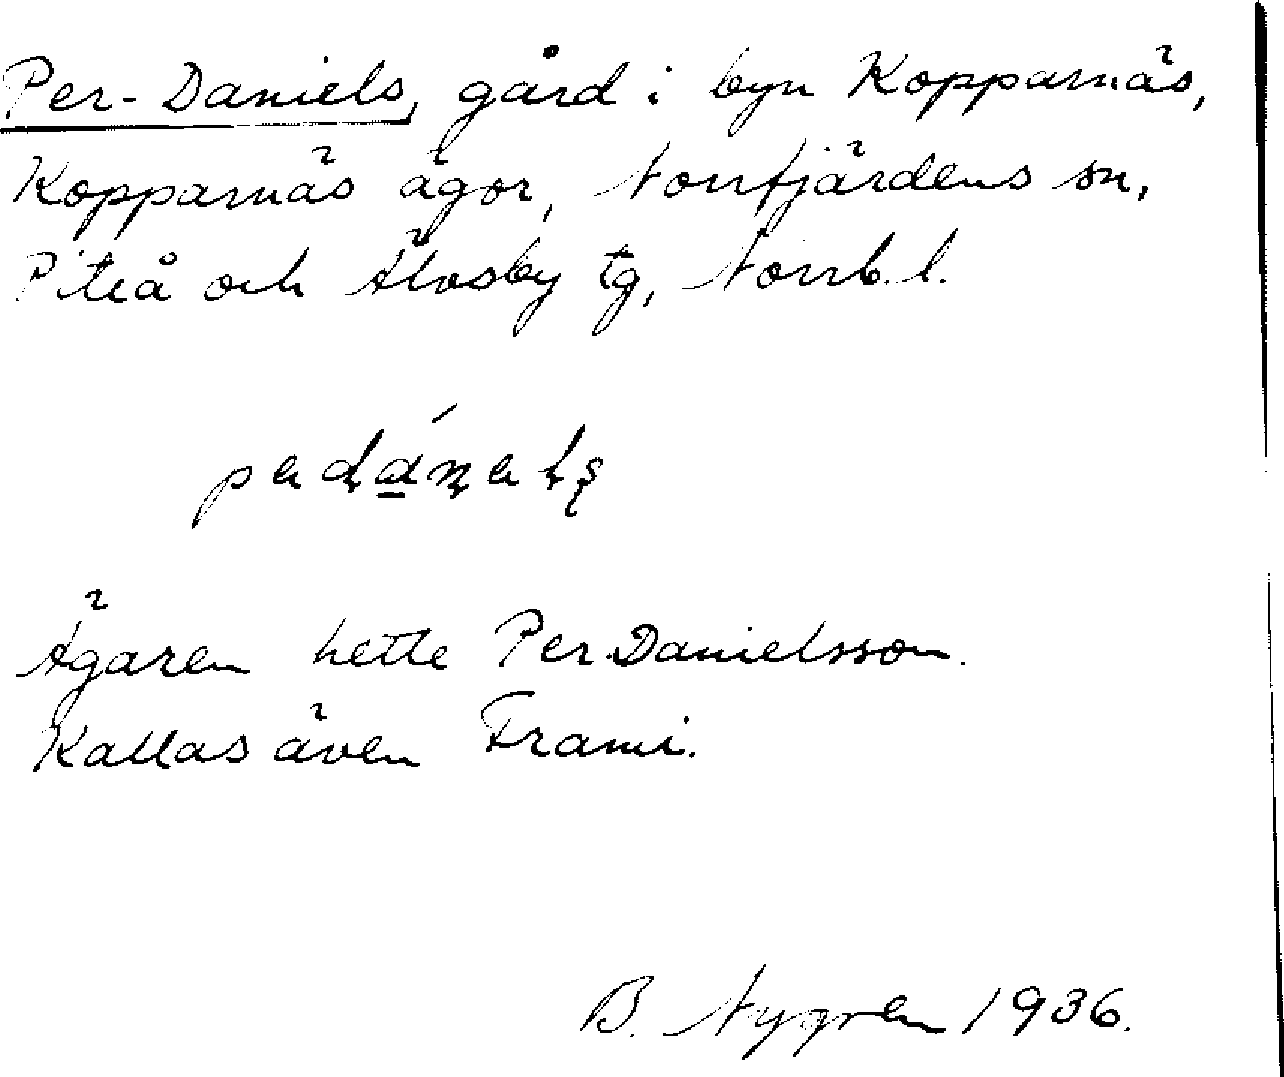 Per-Daniels, gård i byn Kopparnäs,
Kopparnäs ägor, Norrfjärdens sn,
Piteå och Älvsby tg, Norrb. l.
pɐdánɐls
Ägaren hette Per Danielsson.
Kallas även Frami.
B. Nygren 1936.